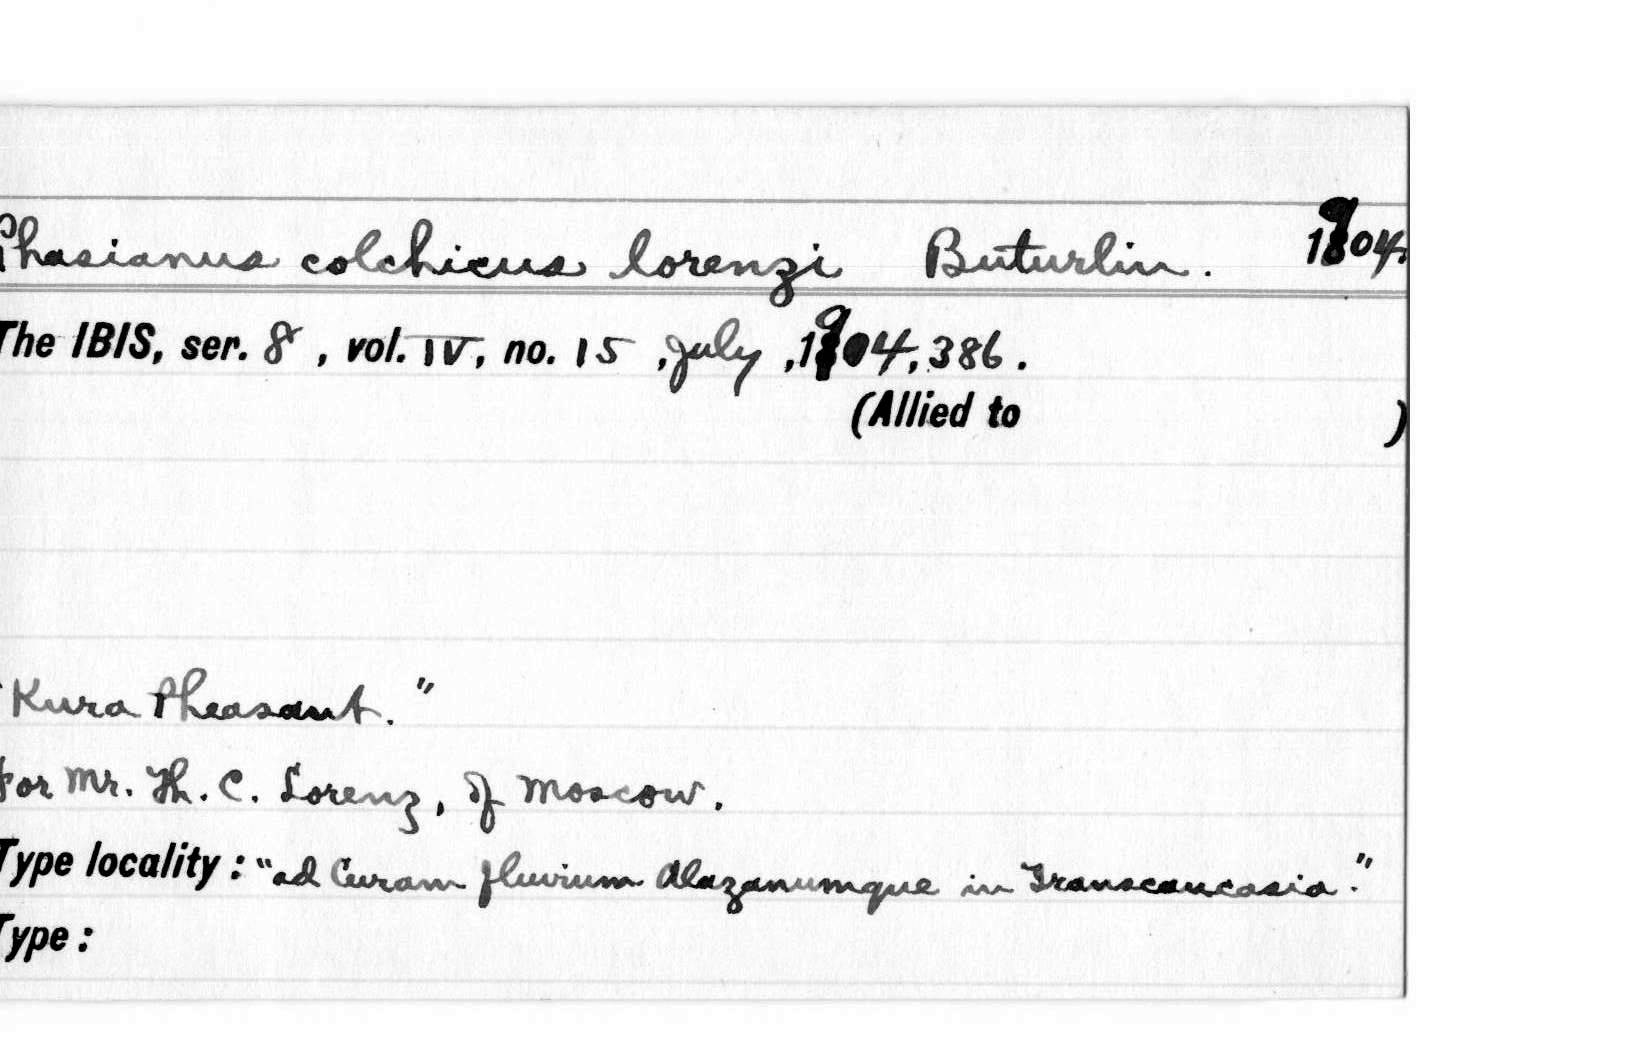 Phasianus colchicus lorenzi Buturlin. 1904.
The IBIS, ser. 8, vol. IV, no. 15, July, 1904, 386.
(Allied to )
"Kura Pheasant."
For Mr. Th. C. Lorenz, of Moscow.
Type locality: "ad Curam fluvium Alazanumque in Transcaucasia."
Type: